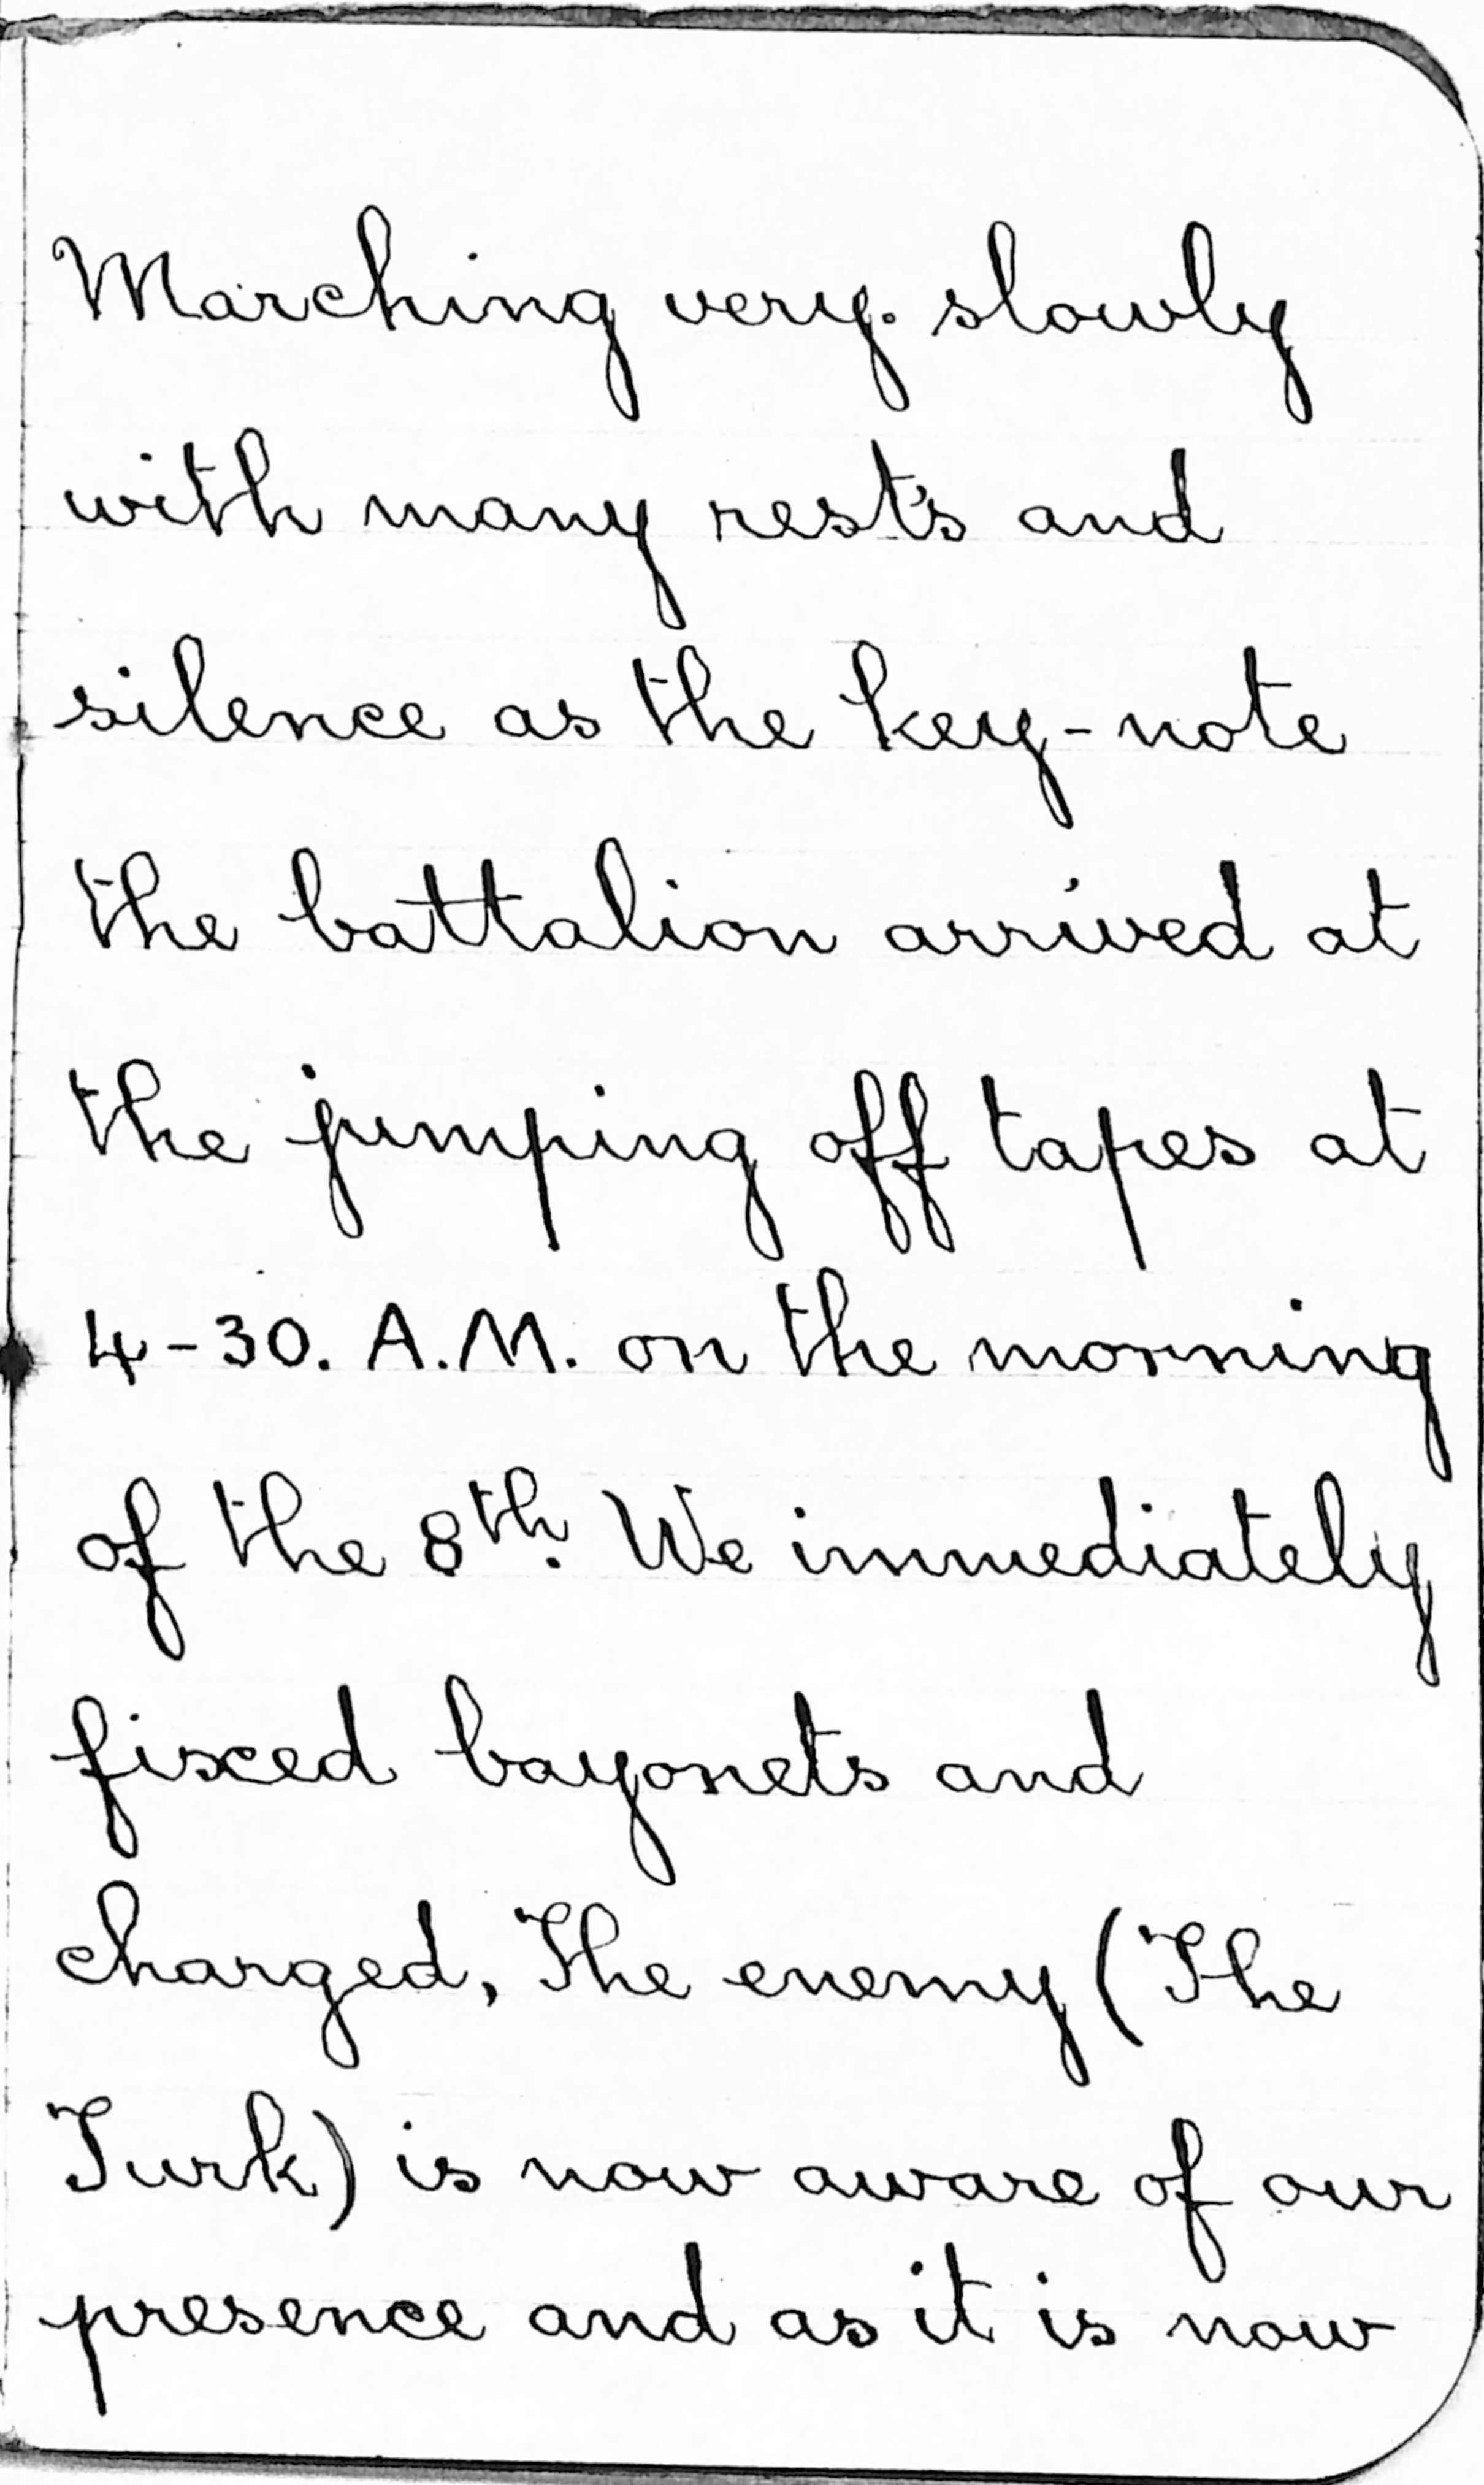 Marching very. slowly
with many rest's and
silence as the key-note
the battalion arrived at
the jumping off tapes at
4-30. A.M. on the morning
of the 8th. We immediately
fixed bayonets and
charged, The enemy (The
Turk) is now aware of our
presence and as it is now